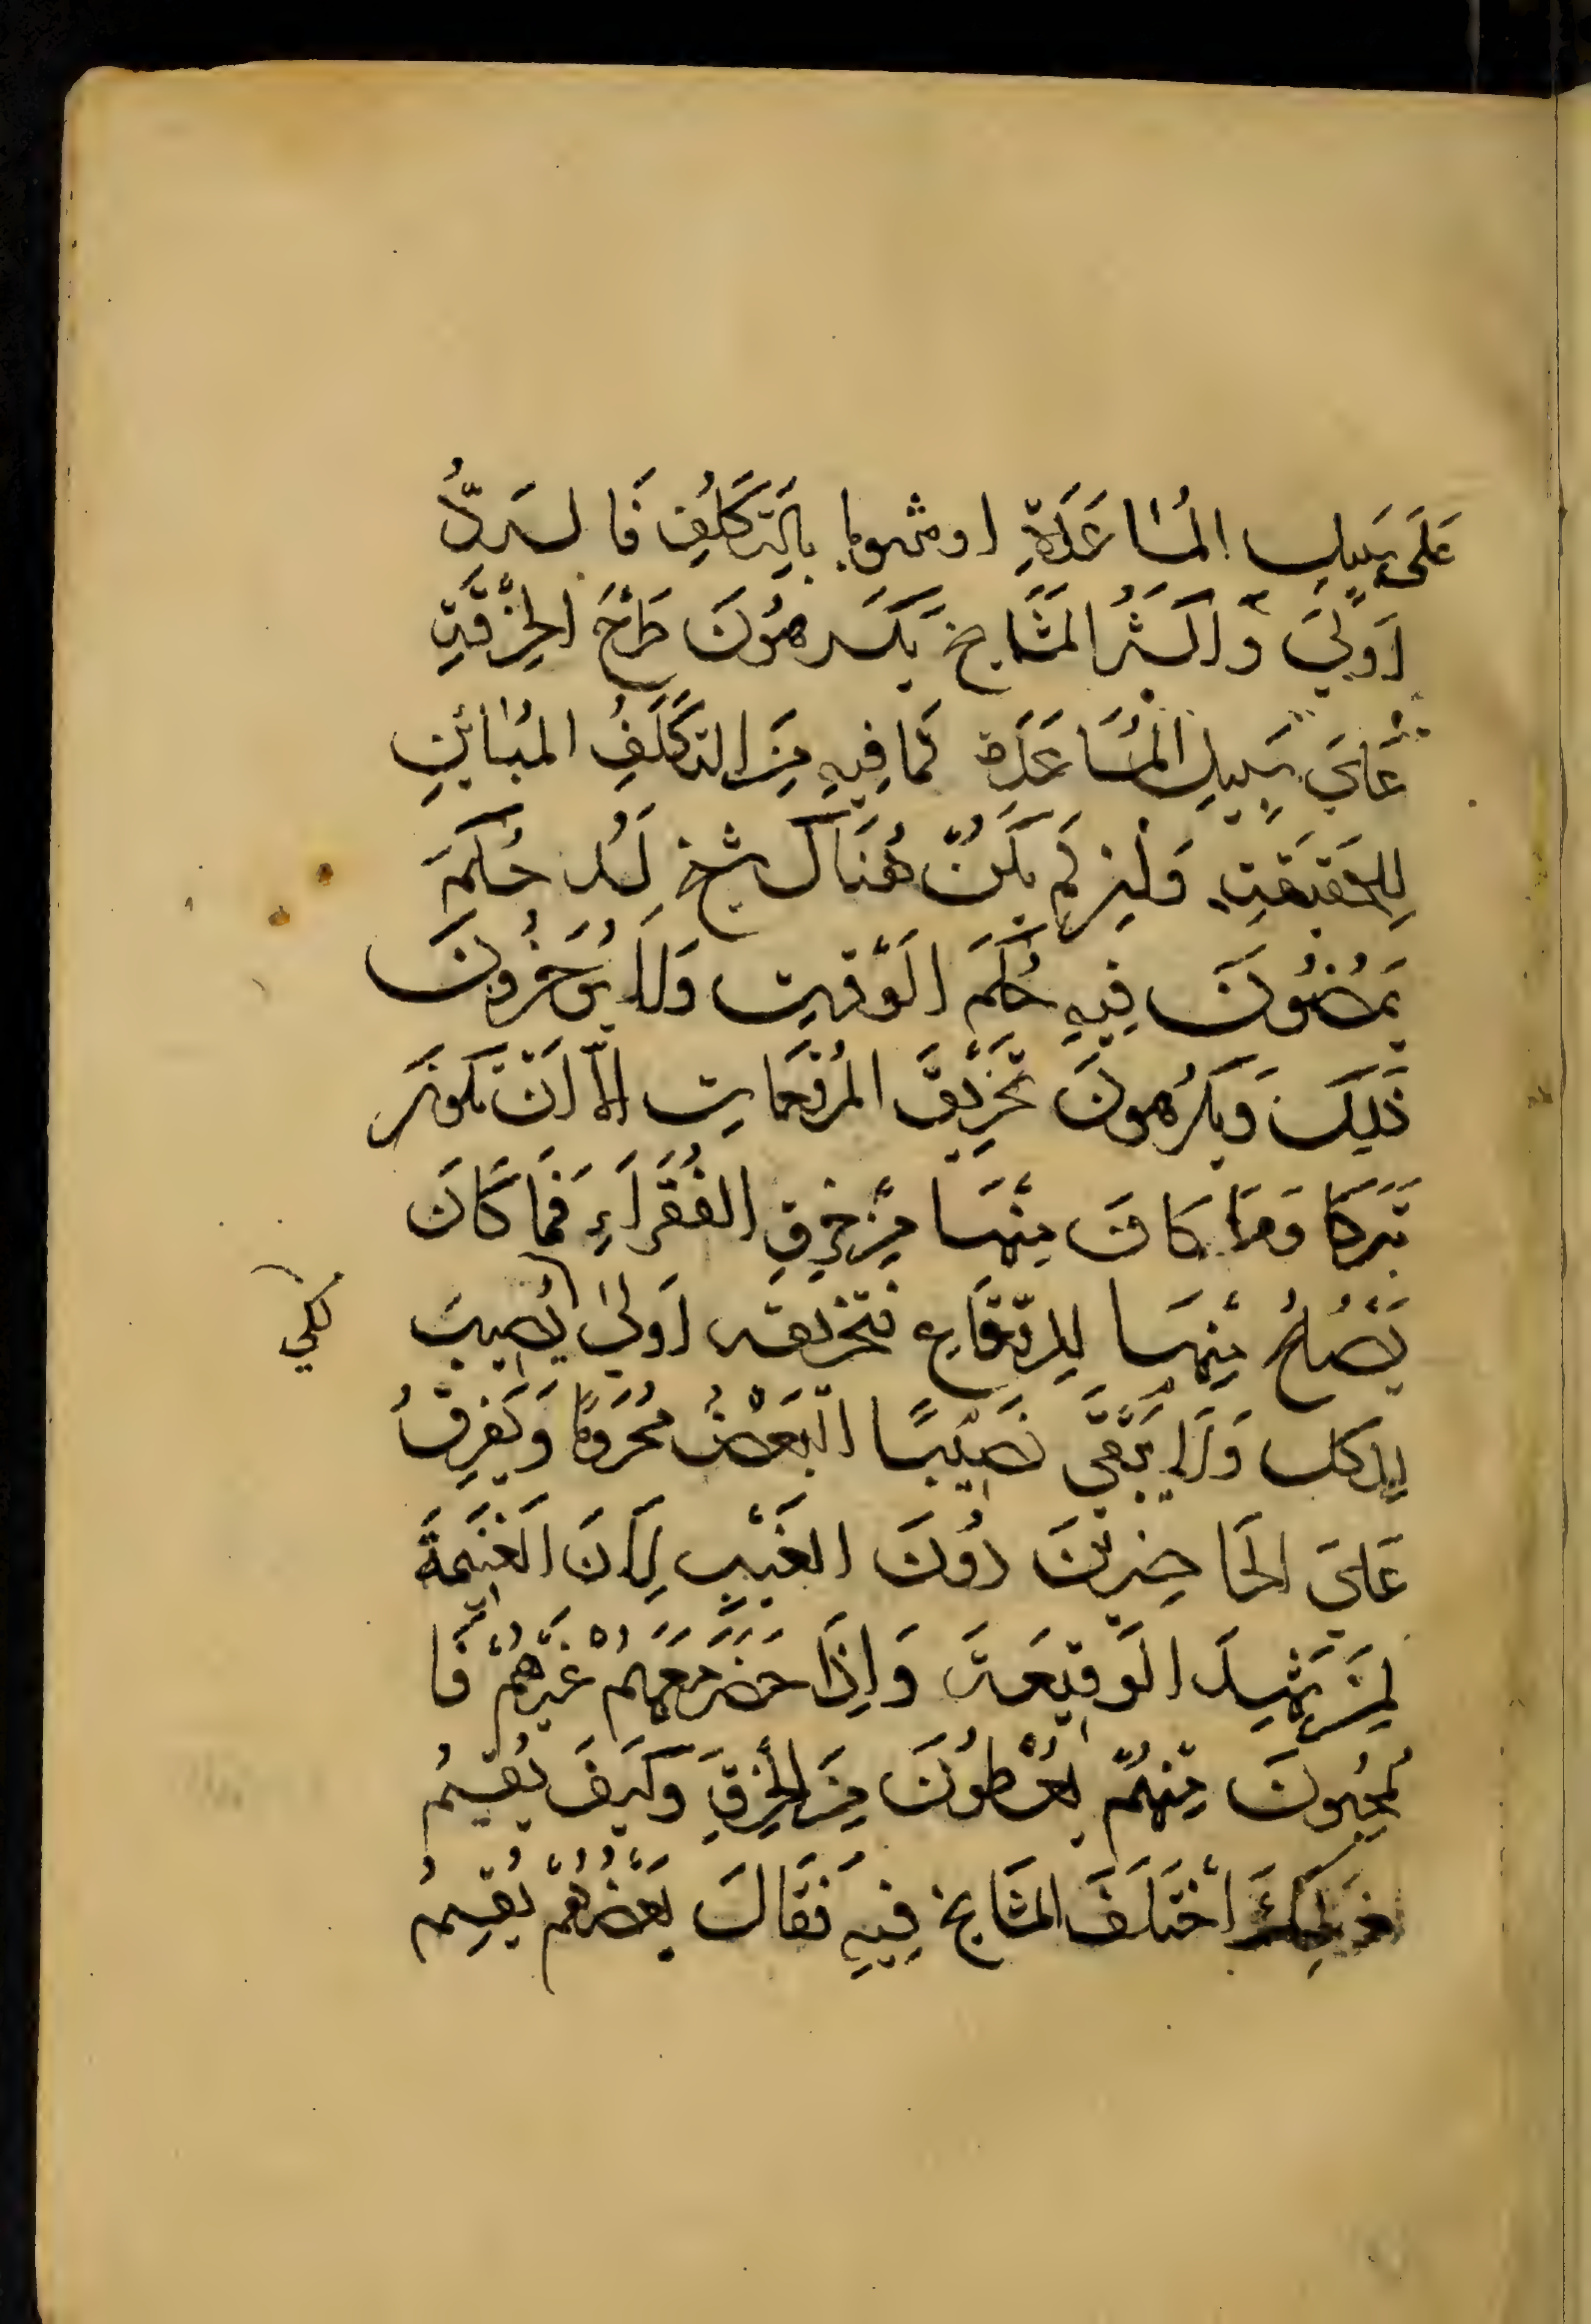 عَلَى سَبِيلِ المُسَاعَدَةِ او مشوبا بِالتَكَلُفِ فَا لسَردُّ
اَوْلَى وَاكثَرُ المشَايخ يَكرَهُونَ طَرْحَ الخِرْقَةِ
عَلىَ سَبِيلِ المُسَاعَدَة لمَا فِيهِ مِنَ التكَلُفِ المُبَائِنِ
لِلحَقِيقَةِ وَاِن لَم يكُنْ هُنَاكَ شيخ لَهُ حُكم
يَمضُونَ فِيهِ حُكمَ الوَقتِ وَلَا يُوَخِرُونَ
ذَلِكَ وَيكرَهُونَ تخَرِيْقَ المُرقعَاتِ اِلّا اَنْ تكون
تَبركا وَمَا كَانَ مِنْهَا مِنْ خِرقِ الفُقَرَاءِ فمَا كَانَ
يَصْلُحُ مِنهَا لِلرقَاعِ فتخريقه اَولىٰ يُصِيبَ
لكي
لِلكل وَلَا يَبقَى نَصِيْبًا الْبَعْضُ محرُومًا وَيُفرِقُ
عَلىَ الحَاضِرِيْنَ دُونَ الغَيْبِ لِاَنَ الغَنِيمَةَ
لِمَنْ شَهِدَ الوَقِيْعَة وَاِذَا حَضَرَ مَعَهُمْ غَيْرُهُمْ فَا
لمحِبُونَ مِنْهُمْ يُعْطَوُنَ مِنَ الخِرَقِ وَكَيفَ يُقسِمُ
ذَلِكَ اخْتَلَفَ المشَايخ فِيهِ فَقَالَ بَعْضُهُمْ يُقسِمُ